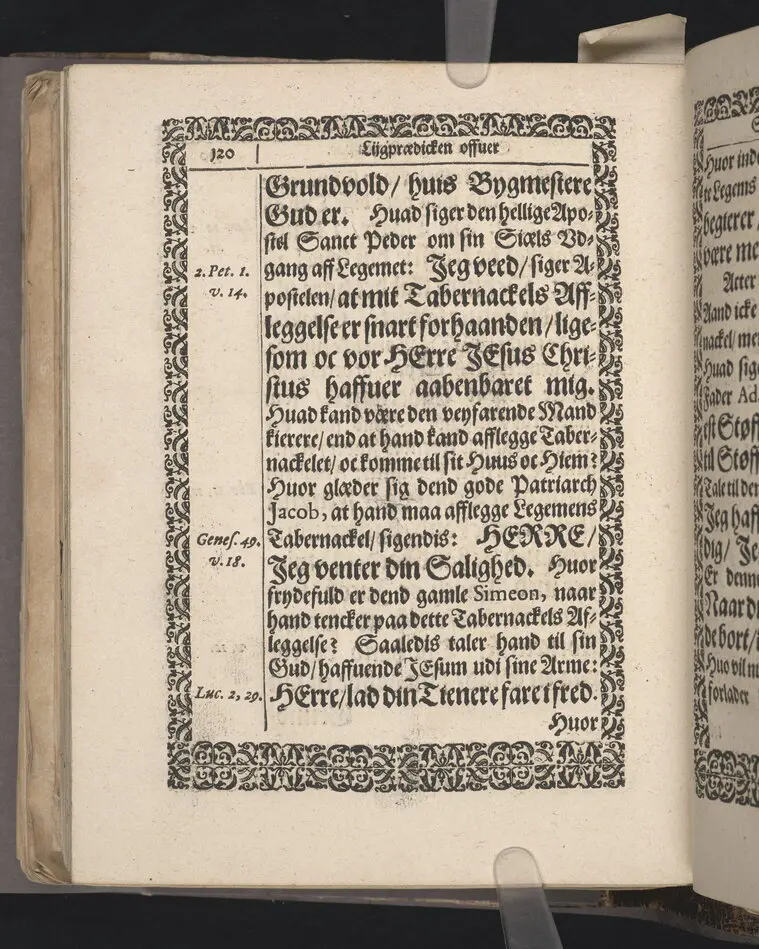 120 Lijgprædicken offuer
Grundvold/ huis Bygmestere
Gud er. Huad siger den hellige Apo-
stel Sanct Peder om sin Siæls Vd-
2. Pet. 1. gang aff Legemet: Jeg veed/ siger A-
v. 14. postelen/ at mit Tabernackels Aff-
leggelse er snart forhaanden/ lige-
som oc vor HErre JEsus Chri-
stus haffuer aabenbaret mig.
Huad kand være den veyfarende Mand
kierere/ end at hand kand afflegge Taber-
nackelet/ oc komme til sit Huus oc Hiem?
Huor glæder sig dend gode Patriarch
Jacob, at hand maa afflegge Legemens
Genes. 49. Tabernackel/ sigendis: HERRE/
v. 18. Jeg venter din Salighed. Huor
frydefuld er dend gamle Simeon, naar
hand tencker paa dette Tabernackels Af-
leggelse? Saaledis taler hand til sin
Gud/ haffuende JEsum udi sine Arme:
Luc. 2, 29. HErre/ lad din Tienere fare i fred.
Huor
Huor ind
Legems
begierer
være me
Atter
Aand icke
nackel/ me
Huad sig
Fader Ad
est Støff
til Støff
Tale til den
Jeg haff
dig/ Je
Er denne
Naar d
de bort/
Huo vil
forlader